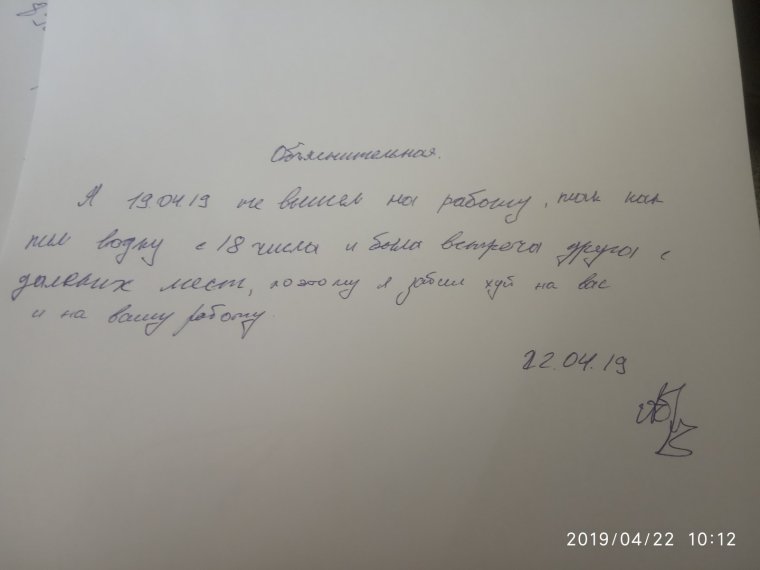 Объяснительная.
Я 19 04 19 не вышел на работу, так как
пил водку с 18 числа и была встреча друга с
далёких мест, поэтому я забил хуй на вас
и на вашу работу.
22.04.19
2019/04/22 10:12